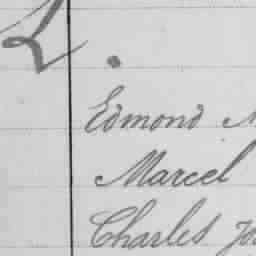 L.
Edmond
Marcel
Charles